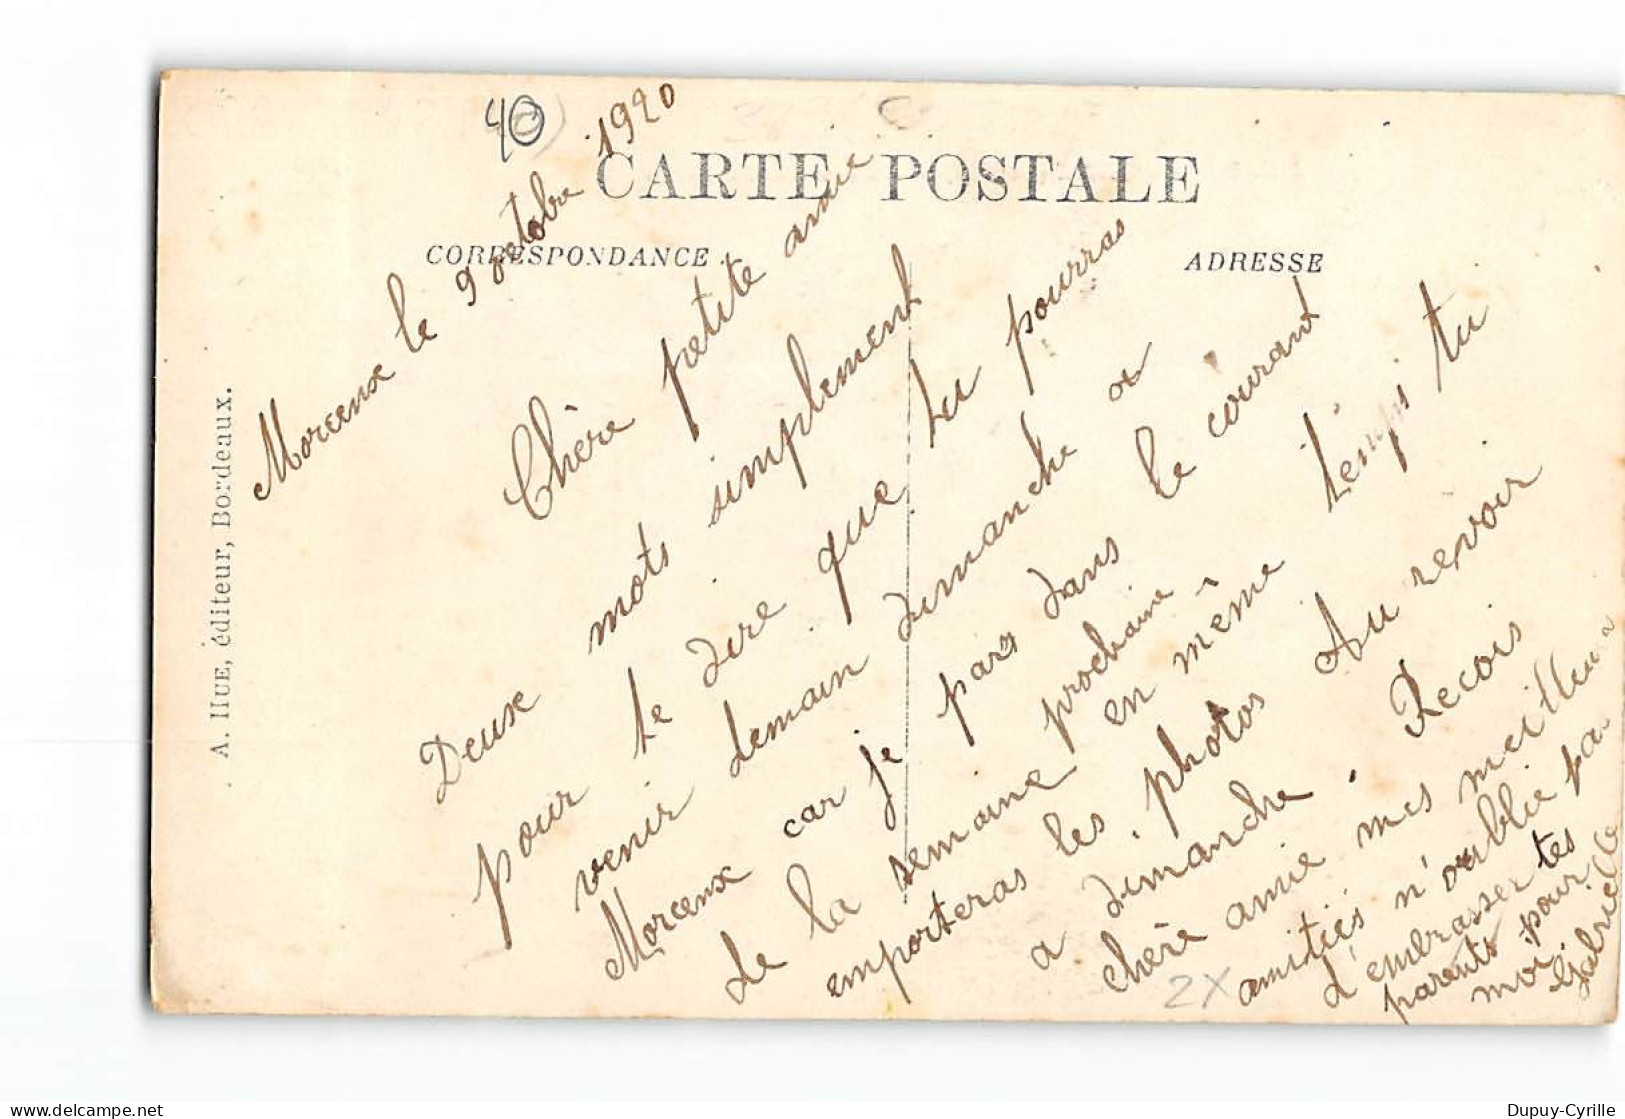 40
CARTE POSTALE
CORRESPONDANCE
ADRESSE
A. HUE, éditeur, Bordeaux.
Morcenx le 9 octobre 1920
Chère petite amie
Deux mots simplement
pour te dire que tu pourras
venir demain dimanche a
Morcenx car je pars dans le courant
de la semaine prochaine
emporteras les photos en même temps tu
a dimanche. Au revoir
chère amie Recois
mes meilleures
amitiés n'oublie pas
d'embrasser tes
parents pour
moi Gabrielle
2X
Dupuy-Cyrille